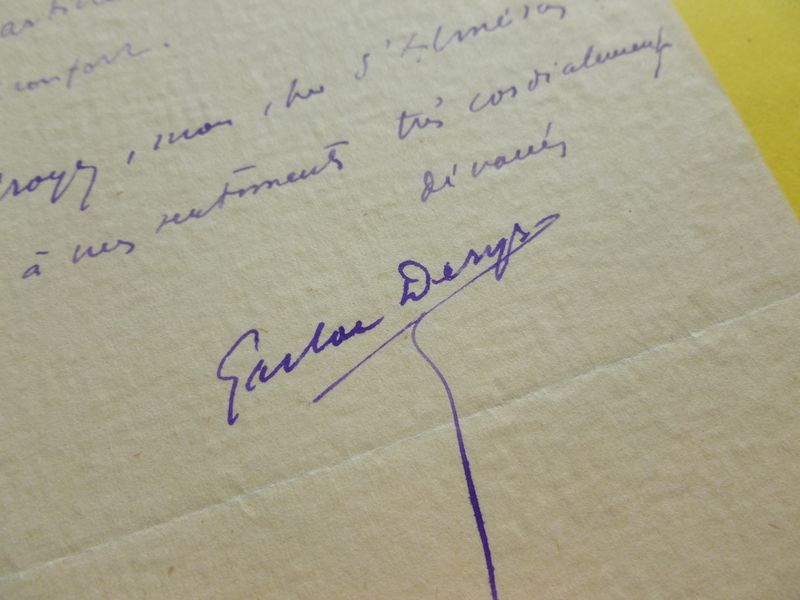 confort.
Croyez, mon cher
à mes sentiments très cordialement
dévoués
Gaston Derys